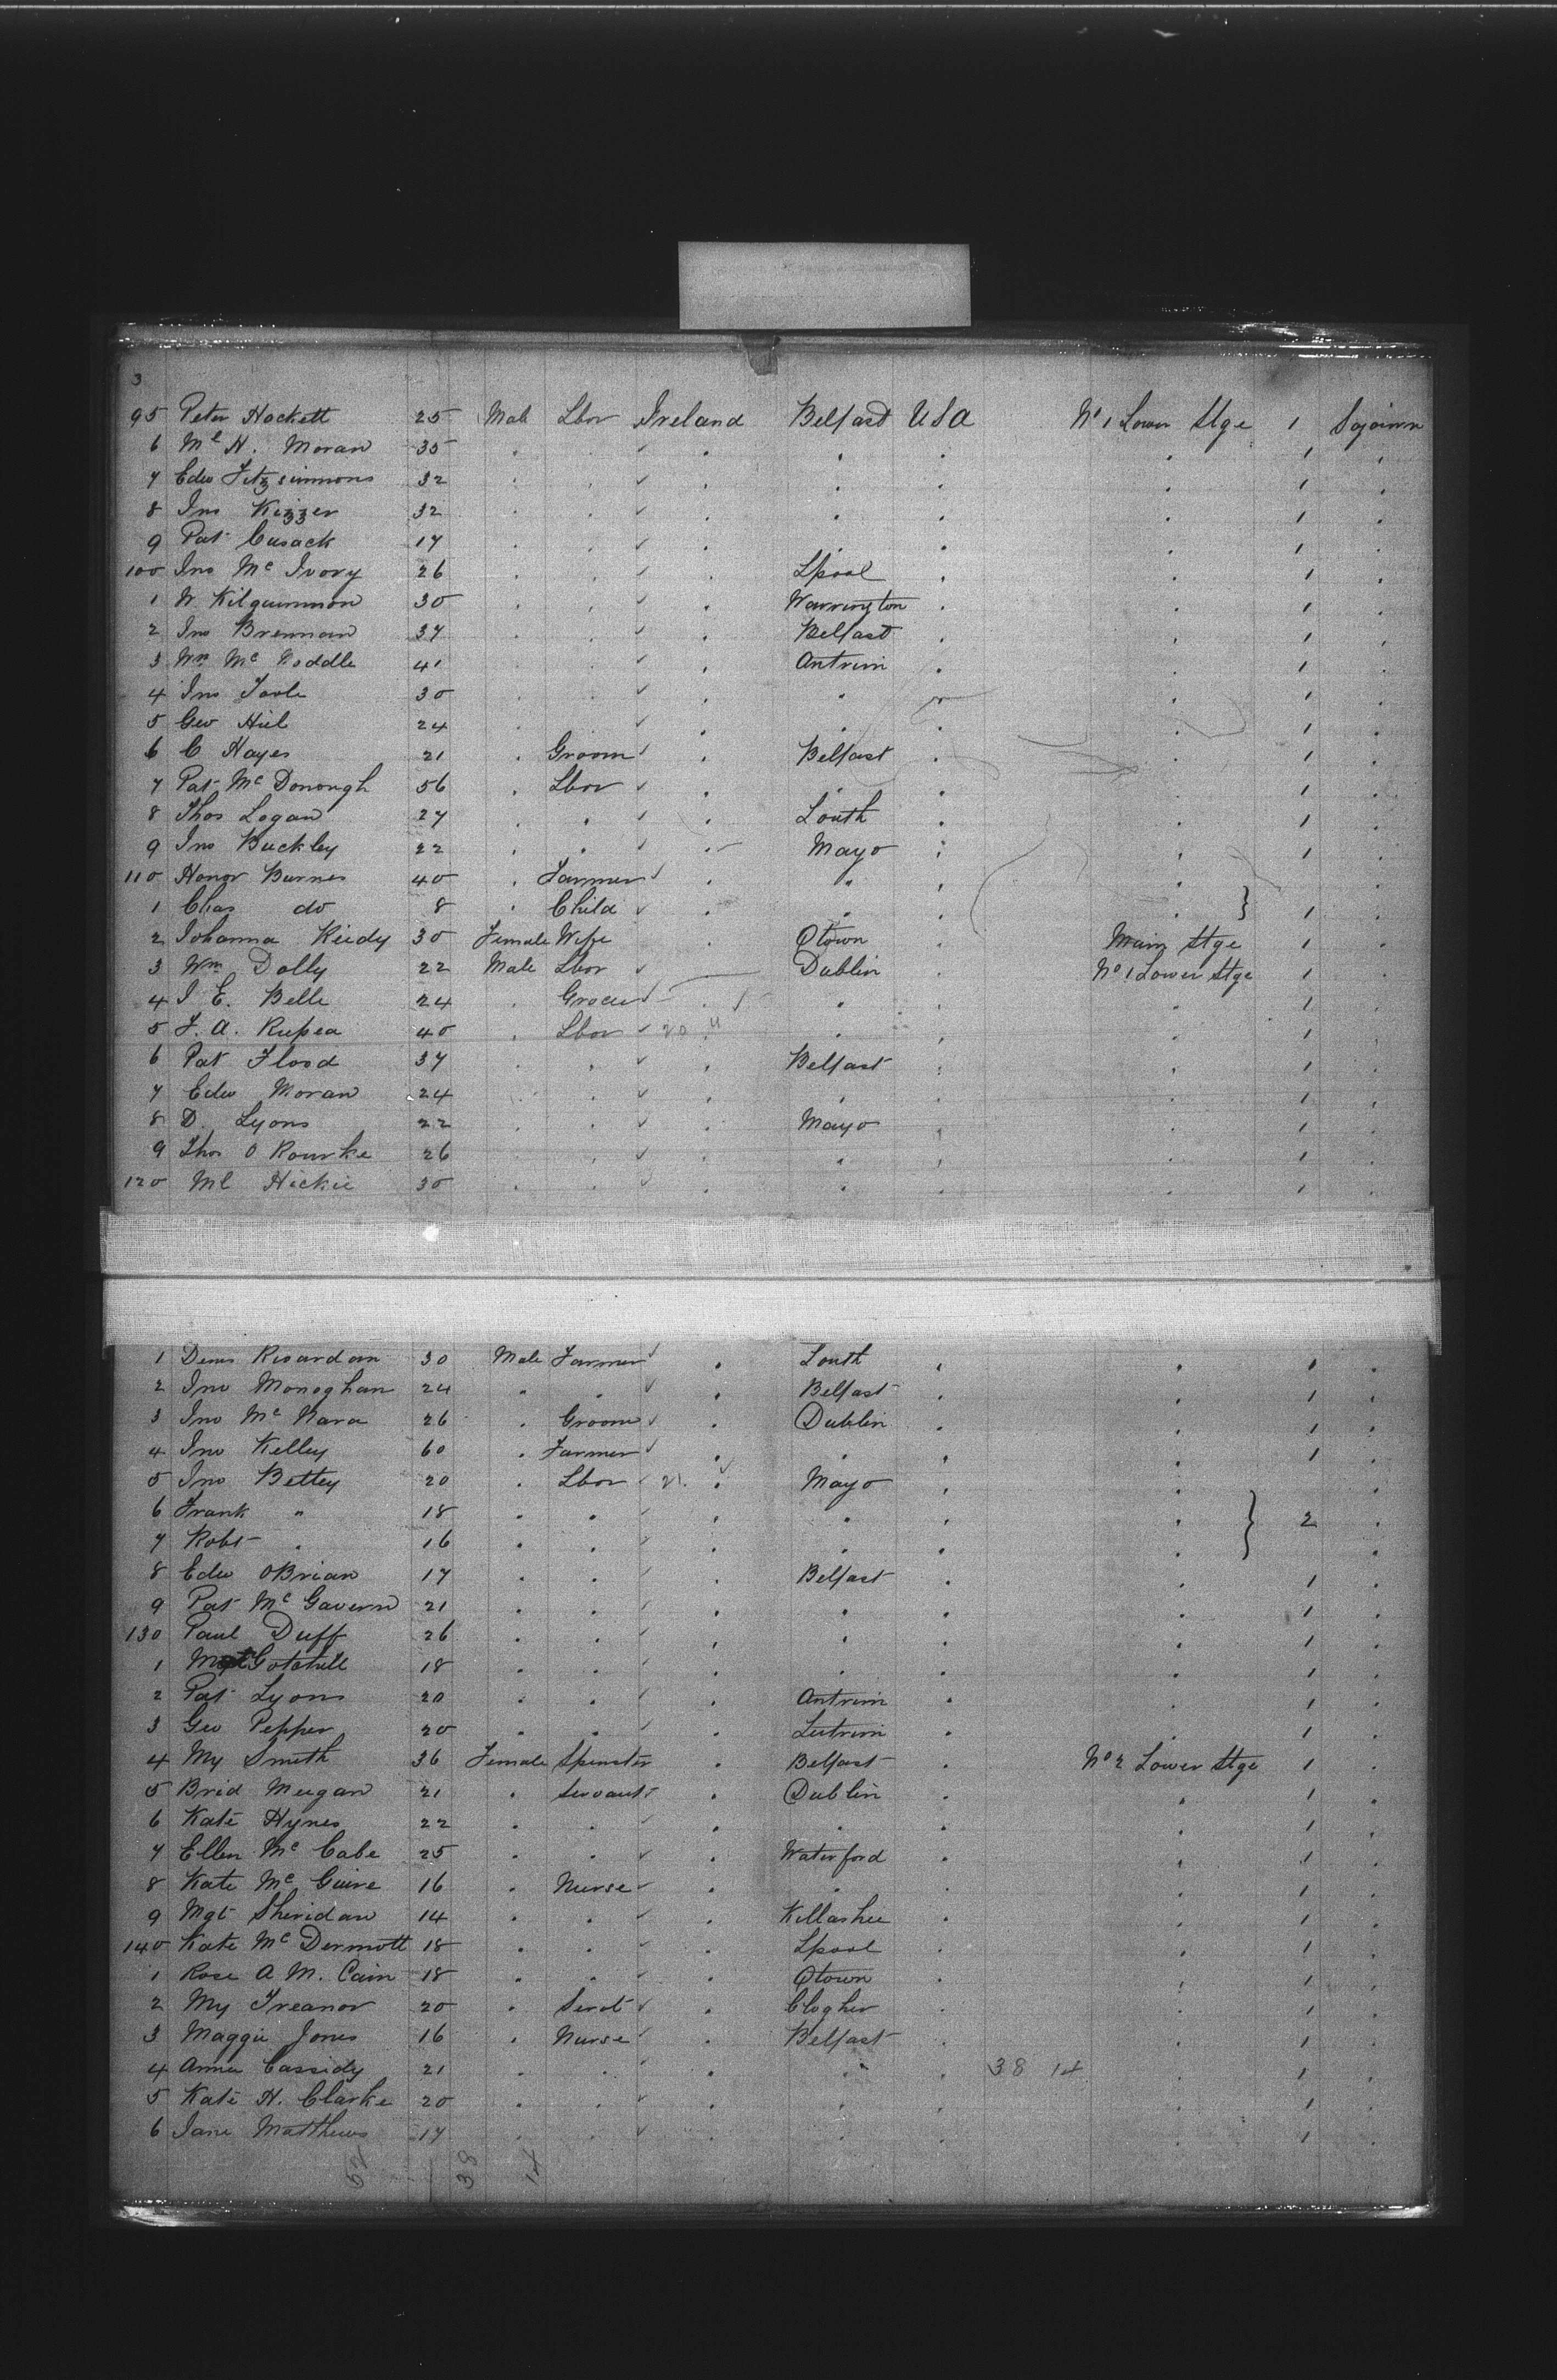 3
95 Peter Hackett 25 Male Lbor Ireland Belfast USA No 1 Lower Stge 1 Sojourn
6 Ml H. Moran 35 " " " " " " 1 "
7 Edw Fitzsimmons 32 " " " " " " 1 "
8 Jno Kizzer 32 " " " " " " 1 "
9 Pat Cusack 17 " " " " " " 1 "
100 Jno Mc Ivory 26 " " " Lpool " " 1 "
1 W Kilgummon 30 " " " Warrington " " 1 "
2 Jno Brennan 37 " " " Belfast " " 1 "
3 Wm Mc Noddle 41 " " " Antrim " " 1 "
4 Jno Toole 30 " " " " " " 1 "
5 Geo Hiel 24 " " " " " " 1 "
6 C Hayes 21 " Groom " Belfast " " 1 "
7 Pat Mc Donough 56 " Lbor " " " " 1 "
8 Thos Logan 27 " " " Louth " " 1 "
9 Jno Buckley 22 " " " Mayo " " 1 "
110 Honor Burnes 40 " Farmer " " " " "
1 Chas do 8 " Child " " " " } 1 "
2 Johanna Kiedy 30 Female Wife " Qtown " Main Stge 1 "
3 Wm Dolly 22 Male Lbor " Dublin " No 1 Lower Stge 1 "
4 J E. Belle 24 " Grocer " " " " 1 "
5 J. A. Rupea 40 " Lbor 20 " " " " 1 "
6 Pat Flood 37 " " " Belfast " " 1 "
7 Edw Moran 24 " " " " " " 1 "
8 D. Lyons 22 " " " Mayo " " 1 "
9 Thos O Rourke 26 " " " " " " 1 "
120 Ml Hickie 30 " " " " " " 1 "
1 Denis Rioardan 30 Male Farmer " Louth " " 1 "
2 Jno Monoghan 24 " " " Belfast " " 1 "
3 Jno Mc Nara 26 " Groom " Dublin " " 1 "
4 Jno Kelley 60 " Farmer " " " " 1 "
5 Jno Bettey 20 " Lbor 21 " Mayo " " "
6 Frank " 18 " " " " " " } 2 "
7 Robt " 16 " " " " " " "
8 Edw OBrian 17 " " " Belfast " " 1 "
9 Pat Mc Gavern 21 " " " " " " 1 "
130 Paul Duff 26 " " " " " " 1 "
1 Gotchell 18 " " " " " " 1 "
2 Pat Lyons 20 " " " Antrim " " 1 "
3 Geo Pepper 20 " " " Leitrim " " 1 "
4 My Smith 36 Female Spinster " Belfast " No 2 Lower Stge 1 "
5 Brid Meegan 21 " Servant " Dublin " " 1 "
6 Kate Hynes 22 " " " " " " 1 "
7 Ellen Mc Cabe 25 " " " Waterford " " 1 "
8 Kate Mc Guire 16 " Nurse " " " " 1 "
9 Mgt Sheridan 14 " " " Killashee " " 1 "
140 Kate Mc Dermott 18 " " " Lpool " " 1 "
1 Rose A M. Cain 18 " " " Qtown " " 1 "
2 My Treanor 20 " Servt " Clogher " " 1 "
3 Maggie Jones 16 " Nurse " Belfast " " 1 "
4 Annie Cassidy 21 " " " " " 38 14 " 1 "
5 Kate H. Clarke 20 " " " " " " 1 "
6 Jane Matthews 17 " " " " " " 1 "
52 38 14